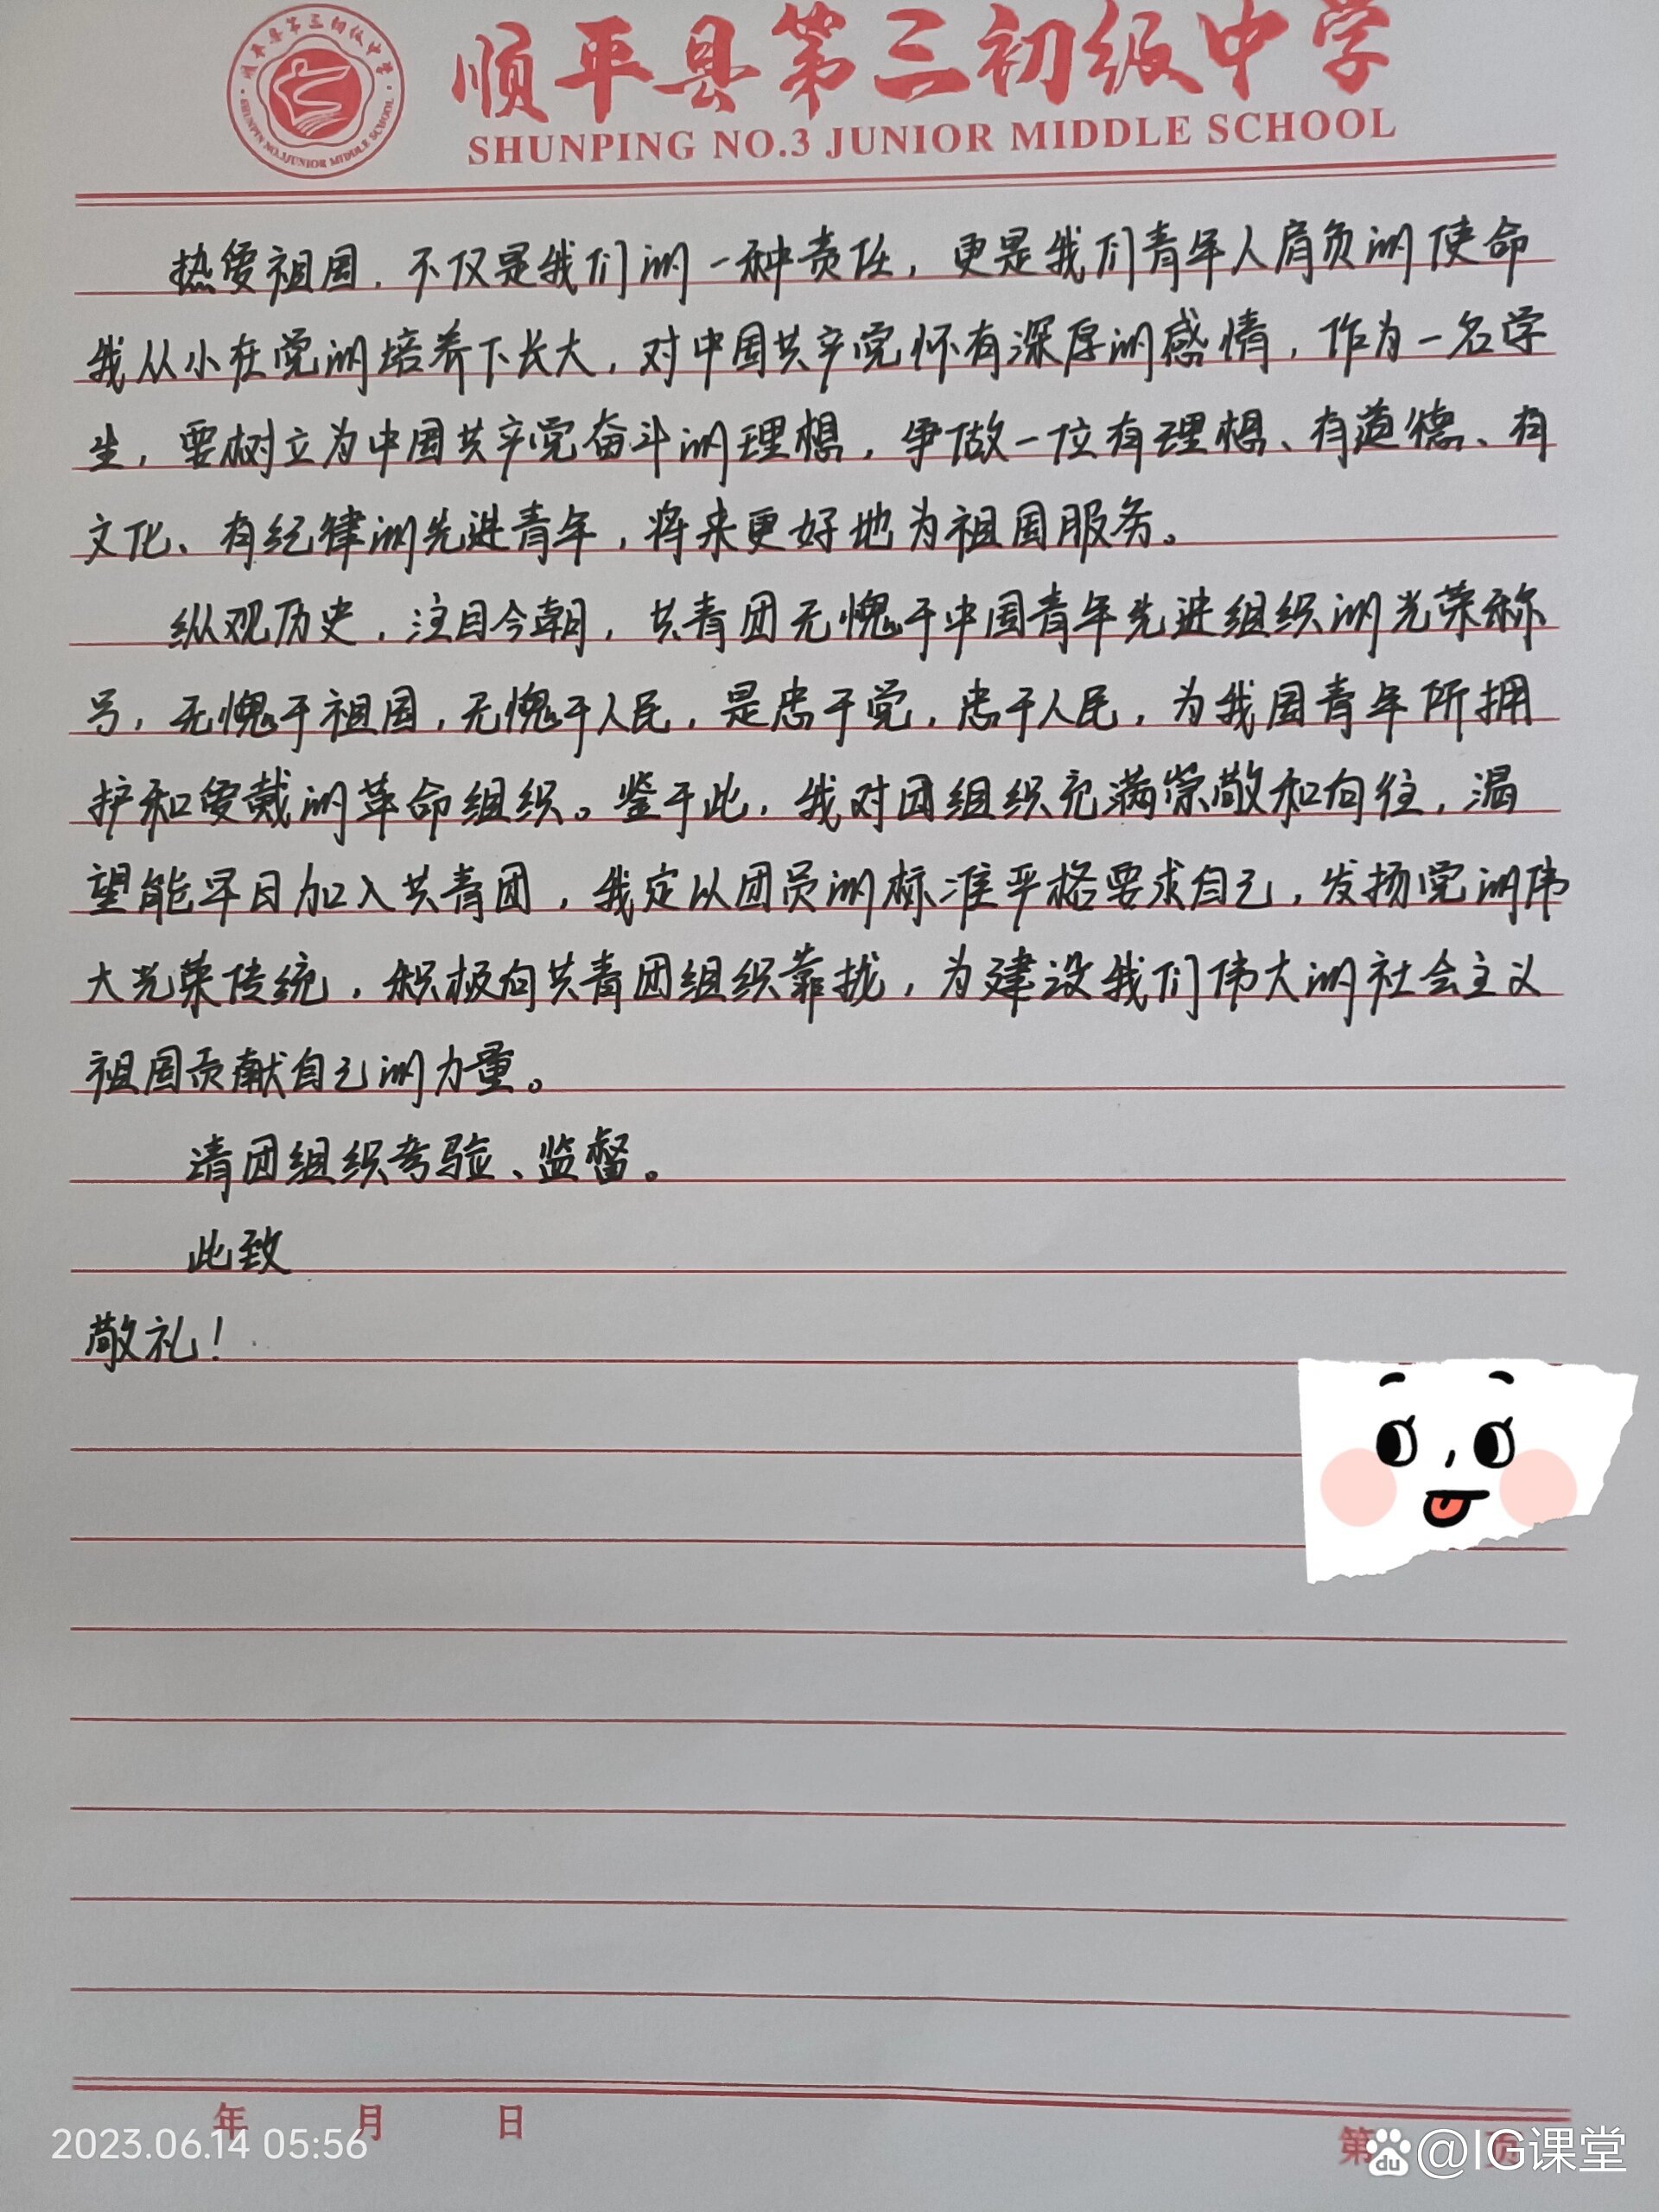 顺平县第三初级中学
SHUNPING NO.3 JUNIOR MIDDLE SCHOOL
顺平县第三初级中学
SHUNPIN NO.3JUNIOR MIDDLE SCHOOL
热爱祖国，不仅是我们的一种责任，更是我们青年人肩负的使命
我从小在党的培养下长大，对中国共产党怀有深厚的感情，作为一名学
生，要树立为中国共产党奋斗的理想，争做一位有理想、有道德、有
文化、有纪律的先进青年，将来更好地为祖国服务。
纵观历史，注目今朝，共青团无愧于中国青年先进组织的光荣称
号，无愧于祖国，无愧于人民，是忠于党，忠于人民，为我国青年所拥
护和爱戴的革命组织。鉴于此，我对团组织充满崇敬和向往，渴
望能早日加入共青团，我定以团员的标准严格要求自己，发扬党的伟
大光荣传统，积极向共青团组织靠拢，为建设我们伟大的社会主义
祖国贡献自己的力量。
请团组织考验、监督。
此致
敬礼！
年 月 日
2023.06.14 05:56
第 页
du @IG课堂